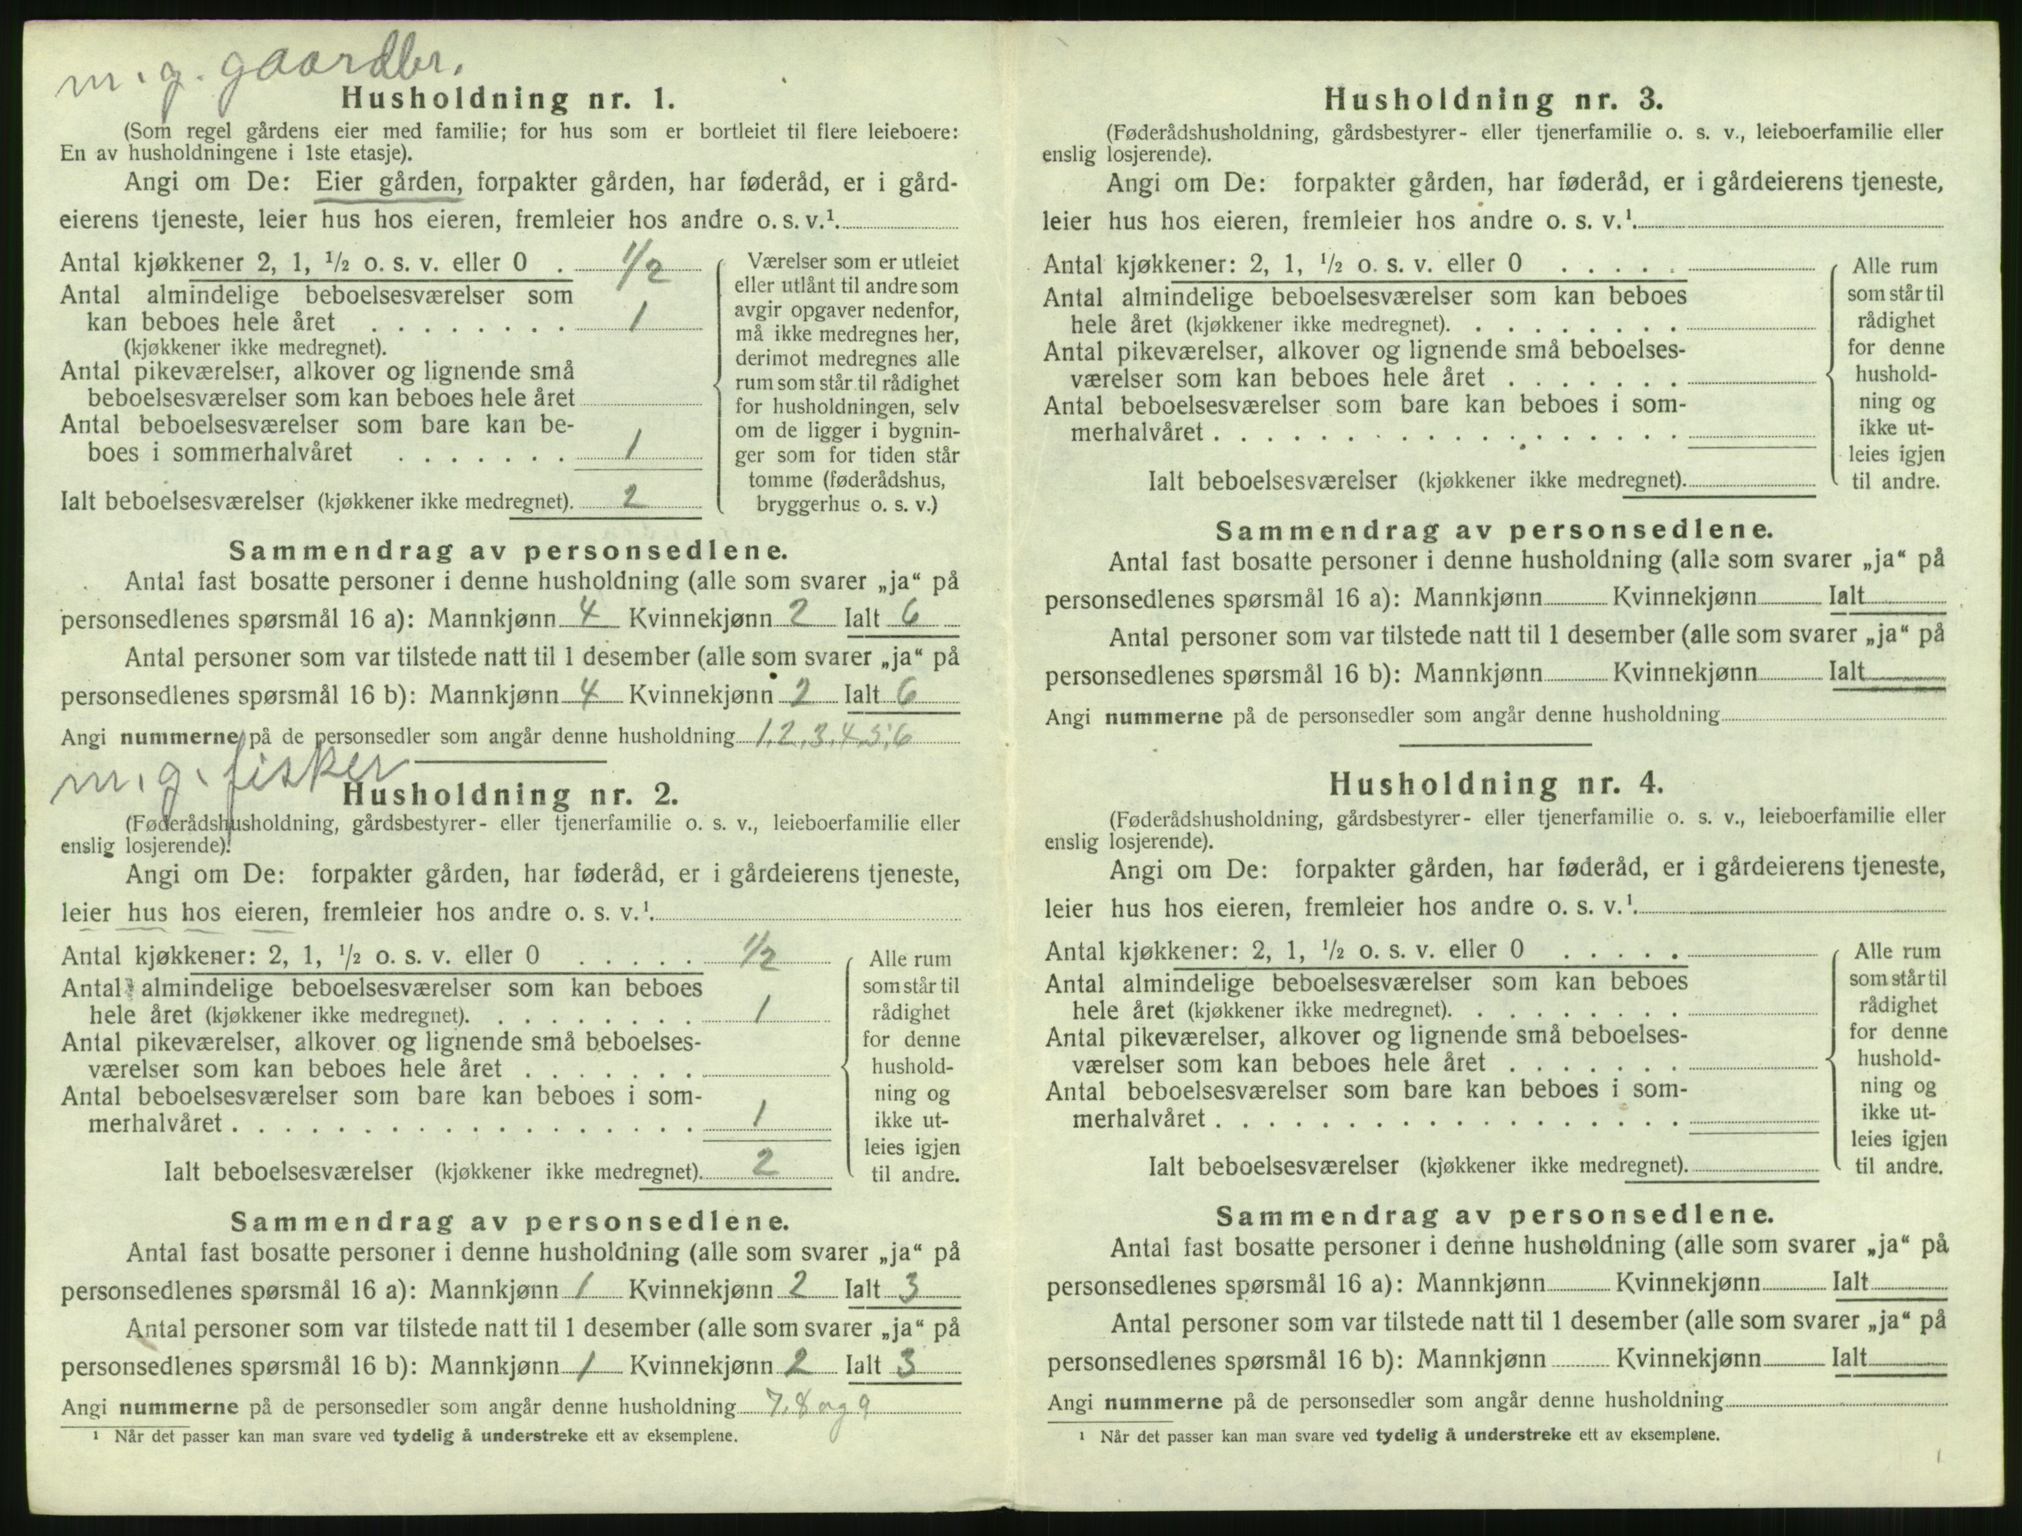 m. g. gaardbr.
Husholdning nr. 1.
(Som regel gårdens eier med familie; for hus som er bortleiet til flere leieboere:
En av husholdningene i 1ste etasje).
Angi om De: Eier gården, forpakter gården, har føderåd, er i gård-
eierens tjeneste, leier hus hos eieren, fremleier hos andre o. s. v.¹.
Antal kjøkkener 2, 1, ½ o. s. v. eller 0 . 1/2
Antal almindelige beboelsesværelser som
kan beboes hele året . . . . . . . . 1
(kjøkkener ikke medregnet).
Antal pikeværelser, alkover og lignende små
beboelsesværelser som kan beboes hele året
Antal beboelsesværelser som bare kan be-
boes i sommerhalvåret . . . . . . . 1
Ialt beboelsesværelser (kjøkkener ikke medregnet). 2
Værelser som er utleiet
eller utlånt til andre som
avgir opgaver nedenfor,
må ikke medregnes her,
derimot medregnes alle
rum som står til rådighet
for husholdningen, selv
om de ligger i bygnin-
ger som for tiden står
tomme (føderådshus,
bryggerhus o. s. v.)
Sammendrag av personsedlene.
Antal fast bosatte personer i denne husholdning (alle som svarer „ja“ på
personsedlenes spørsmål 16 a): Mannkjønn 4 Kvinnekjønn 2 Ialt 6
Antal personer som var tilstede natt til 1 desember (alle som svarer „ja“ på
personsedlenes spørsmål 16 b): Mannkjønn 4 Kvinnekjønn 2 Ialt 6
Angi nummerne på de personsedler som angår denne husholdning 1,2,3,4,5,6
m. g. fisker
Husholdning nr. 2.
(Føderådshusholdning, gårdsbestyrer- eller tjenerfamilie o. s. v., leieboerfamilie eller
enslig losjerende).
Angi om De: forpakter gården, har føderåd, er i gårdeierens tjeneste,
leier hus hos eieren, fremleier hos andre o. s. v.¹.
Antal kjøkkener: 2, 1, ½ o. s. v. eller 0 . . . . . 1/2
Antal almindelige beboelsesværelser som kan beboes
hele året (kjøkkener ikke medregnet). . . . . . . . . 1
Antal pikeværelser, alkover og lignende små beboelses-
værelser som kan beboes hele året . . . . . . .
Antal beboelsesværelser som bare kan beboes i som-
merhalvåret . . . . . . . . . . . . . . . . . . 1
Ialt beboelsesværelser (kjøkkener ikke medregnet). 2
Alle rum
som står til
rådighet
for denne
hushold-
ning og
ikke ut-
leies igjen
til andre.
Sammendrag av personsedlene.
Antal fast bosatte personer i denne husholdning (alle som svarer „ja“ på
personsedlenes spørsmål 16 a): Mannkjønn 1 Kvinnekjønn 2 Ialt 3
Antal personer som var tilstede natt til 1 desember (alle som svarer „ja“ på
personsedlenes spørsmål 16 b): Mannkjønn 1 Kvinnekjønn 2 Ialt 3
Angi nummerne på de personsedler som angår denne husholdning 7, 8 og 9
¹ Når det passer kan man svare ved tydelig å understreke ett av eksemplene.
Husholdning nr. 3.
(Føderådshusholdning, gårdsbestyrer- eller tjenerfamilie o. s. v., leieboerfamilie eller
enslig losjerende).
Angi om De: forpakter gården, har føderåd, er i gårdeierens tjeneste,
leier hus hos eieren, fremleier hos andre o. s. v.¹.
Antal kjøkkener: 2, 1, ½ o. s. v. eller 0 . . . . .
Antal almindelige beboelsesværelser som kan beboes
hele året (kjøkkener ikke medregnet). . . . . . . . .
Antal pikeværelser, alkover og lignende små beboelses-
værelser som kan beboes hele året . . . . . . .
Antal beboelsesværelser som bare kan beboes i som-
merhalvåret . . . . . . . . . . . . . . . . . .
Ialt beboelsesværelser (kjøkkener ikke medregnet).
Alle rum
som står til
rådighet
for denne
hushold-
ning og
ikke ut-
leies igjen
til andre.
Sammendrag av personsedlene.
Antal fast bosatte personer i denne husholdning (alle som svarer „ja“ på
personsedlenes spørsmål 16 a): Mannkjønn Kvinnekjønn Ialt
Antal personer som var tilstede natt til 1 desember (alle som svarer „ja“ på
personsedlenes spørsmål 16 b): Mannkjønn Kvinnekjønn Ialt
Angi nummerne på de personsedler som angår denne husholdning
Husholdning nr. 4.
(Føderådshusholdning, gårdsbestyrer- eller tjenerfamilie o. s. v., leieboerfamilie eller
enslig losjerende).
Angi om De: forpakter gården, har føderåd, er i gårdeierens tjeneste,
leier hus hos eieren, fremleier hos andre o. s. v.¹.
Antal kjøkkener: 2, 1, ½ o. s. v. eller 0 . . . . .
Antal almindelige beboelsesværelser som kan beboes
hele året (kjøkkener ikke medregnet). . . . . . . . .
Antal pikeværelser, alkover og lignende små beboelses-
værelser som kan beboes hele året . . . . . . .
Antal beboelsesværelser som bare kan beboes i som-
merhalvåret . . . . . . . . . . . . . . . . . .
Ialt beboelsesværelser (kjøkkener ikke medregnet).
Alle rum
som står til
rådighet
for denne
hushold-
ning og
ikke ut-
leies igjen
til andre.
Sammendrag av personsedlene.
Antal fast bosatte personer i denne husholdning (alle som svarer „ja“ på
personsedlenes spørsmål 16 a): Mannkjønn Kvinnekjønn Ialt
Antal personer som var tilstede natt til 1 desember (alle som svarer „ja“ på
personsedlenes spørsmål 16 b): Mannkjønn Kvinnekjønn Ialt
Angi nummerne på de personsedler som angår denne husholdning
¹ Når det passer kan man svare ved tydelig å understreke ett av eksemplene.